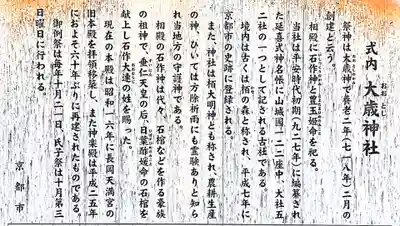 式内 大歳神社
おお とし
祭神は大歳神で養老二年(七一八年)二月の
創建と云う。
相殿に石作神と豊玉姫命を祀る。
当社は平安時代初期(九二七年)に編纂され
た延喜式神名帳に山城国一二二座中、大社五
二社の一つとして記される古社である。
境内は古くは栢の森と称され、平成七年に
京都市の史跡に登録される。
また、神社は栢大明神とも称され、農耕生産
の神、ひいては方除祈雨にも霊験ありと知ら
れ当地方の守護神である。
相殿の石作神は代々、石棺などを作る豪族
の祖神で、垂仁天皇の后、日葉酢媛命の石棺を
献上し石作大連の姓を賜った。
現在の本殿は昭和一六年に長岡天満宮の
旧本殿を拝領移築し、また神楽殿は平成二五年
におよそ六十年ぶりに再建されたものである。
御例祭は毎年十月二一日、氏子祭は十月第三
日曜日に行われる。
京都市